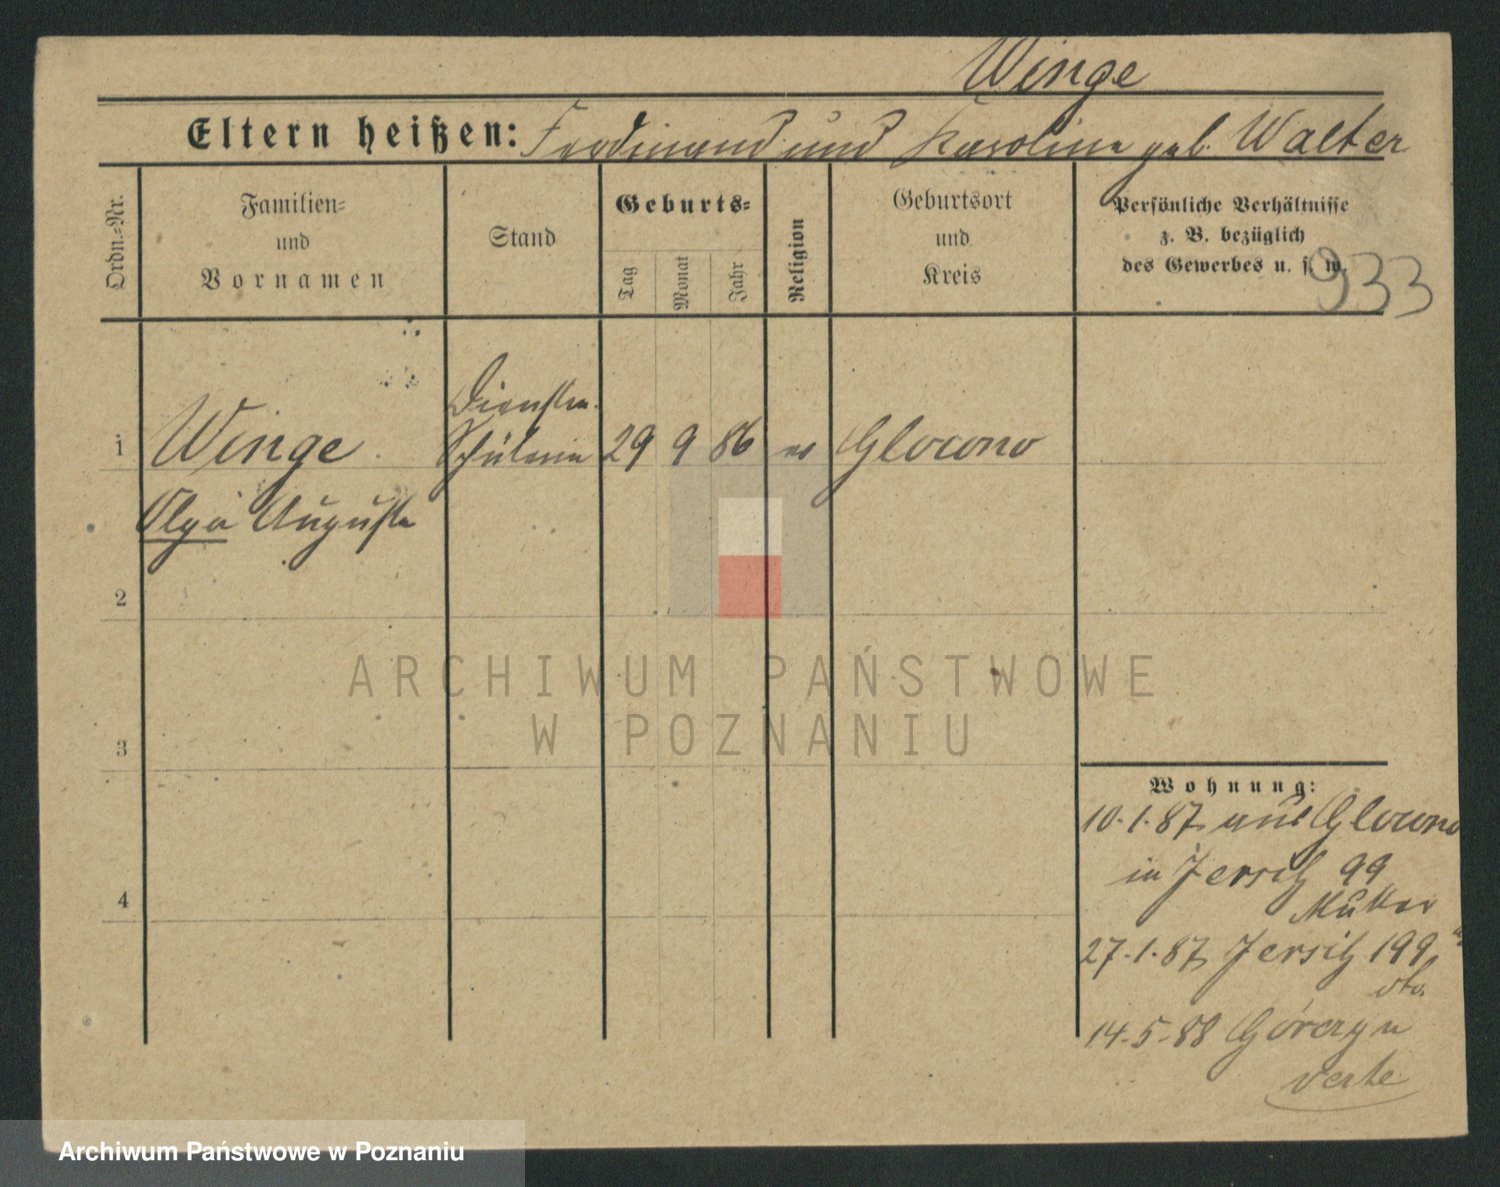 Winge
Eltern heißen: Ferdinand und Karoline geb. Walter
Ordn.=Nr.
Familien=
und
Vornamen
Stand
Geburts=
Tag
Monat
Jahr
Religion
Geburtsort
und
Kreis
Persönliche Verhältnisse
z. B. bezüglich
des Gewerbes u. s. w.
933
1 Winge 29 9 86 ev Glowno
Olga Auguste
2
3
4
Wohnung:
10.1.87 aus Glowno
in Jersitz 99
Mutter
27.1.87 Jersitz 199
dto.
14.5.88 Górczyn
verte
ARCHIWUM PAŃSTWOWE
W POZNANIU
Archiwum Państwowe w Poznaniu